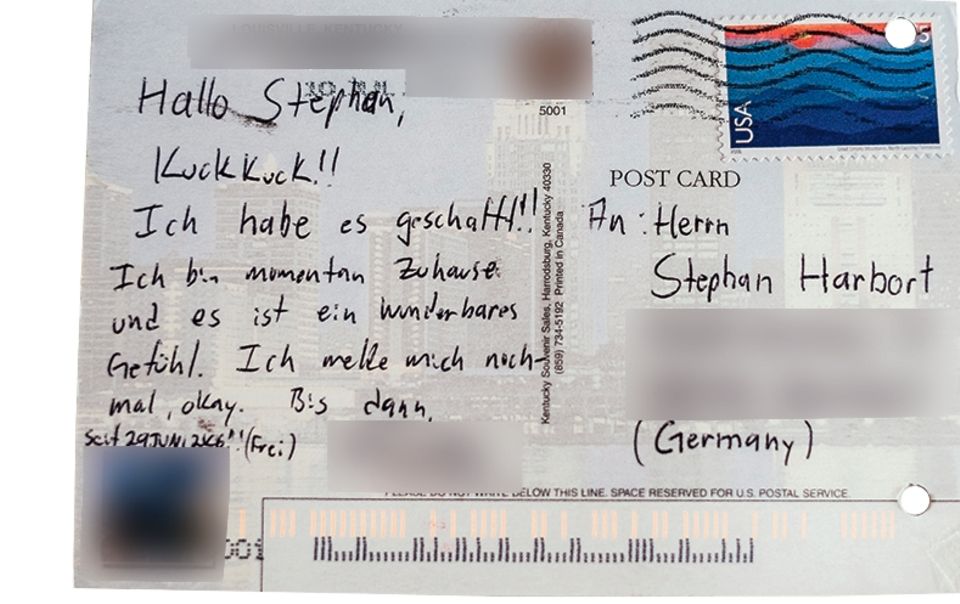 Hallo Stephan,
KuckKuck!!
Ich habe es geschafft!!
Ich bin momentan Zuhause
und es ist ein wunderbares
Gefühl. Ich melde mich noch-
mal, okay. Bis dann,
seit 29 JUNI !! (Frei)
5001
Kentucky Souvenir Sales, Harrodsburg, Kentucky 40330
(859) 734-5192 Printed in Canada
USA
POST CARD
An: Herrn
Stephan Harbort
(Germany)
PLEASE DO NOT WRITE BELOW THIS LINE. SPACE RESERVED FOR U.S. POSTAL SERVICE.
001